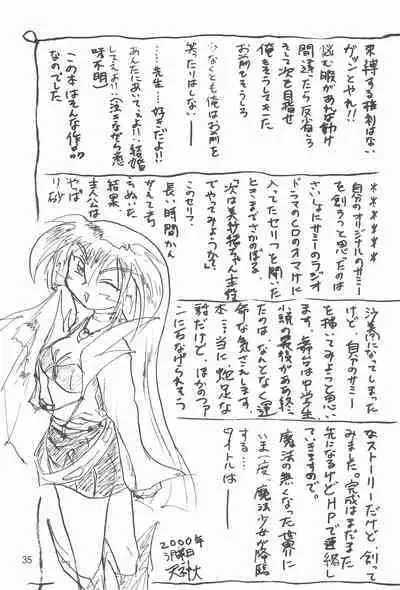 束縛する権利はない
ガツンとやれ!!
悩む暇があれば動け
間違ったら反省しろ
そして次を目指せ
俺もそうしてきた
お前もそうしろ
少なくとも俺はお前を
笑たりはしない――
…先生…好きだよ!!
あんたにあいてぇよ!!結婚
してえよ!!(泣きながら
味不明)
この本はそんな作品
なのでした
*****
自分のオリジナルのサミー
を創ろっと思ったのは
さいしょにサミーのラジオ
ドラマのCDのオマケに
入ってたセリフと聞いた
ときまでさかのぼる
「次は美紗緒ちゃん主役
でやってみようか?」
このセリフ。
長い時間かん
がえて
ぬいた
結果
主人公は
やっぱ
り砂
沙になってしまった
けど、自分のサミー
を描いてみようと思い
ます。舞台は中学生
小説の最後がああ終っ
たのは、なんとなく運
命な気さえします。
本…当に蛇足な
話だけど、ほかのファ
ンに石なげられそう
なストーリーだけど、創って
みました。完成はまだまた
先になるけどHPで連載し
ていきますので。
魔法の無くなった世界に
いま一度、魔法少女が降臨
する…
タイトルは――
2000年
3月末日
35